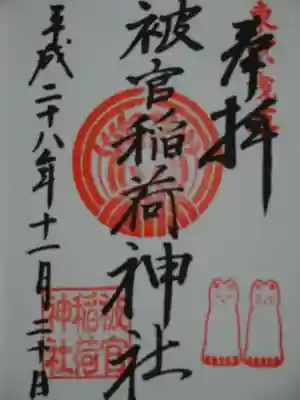 奉拝
被官稲荷神社
平成二十八年十一月二十日
被官
稲荷
神社